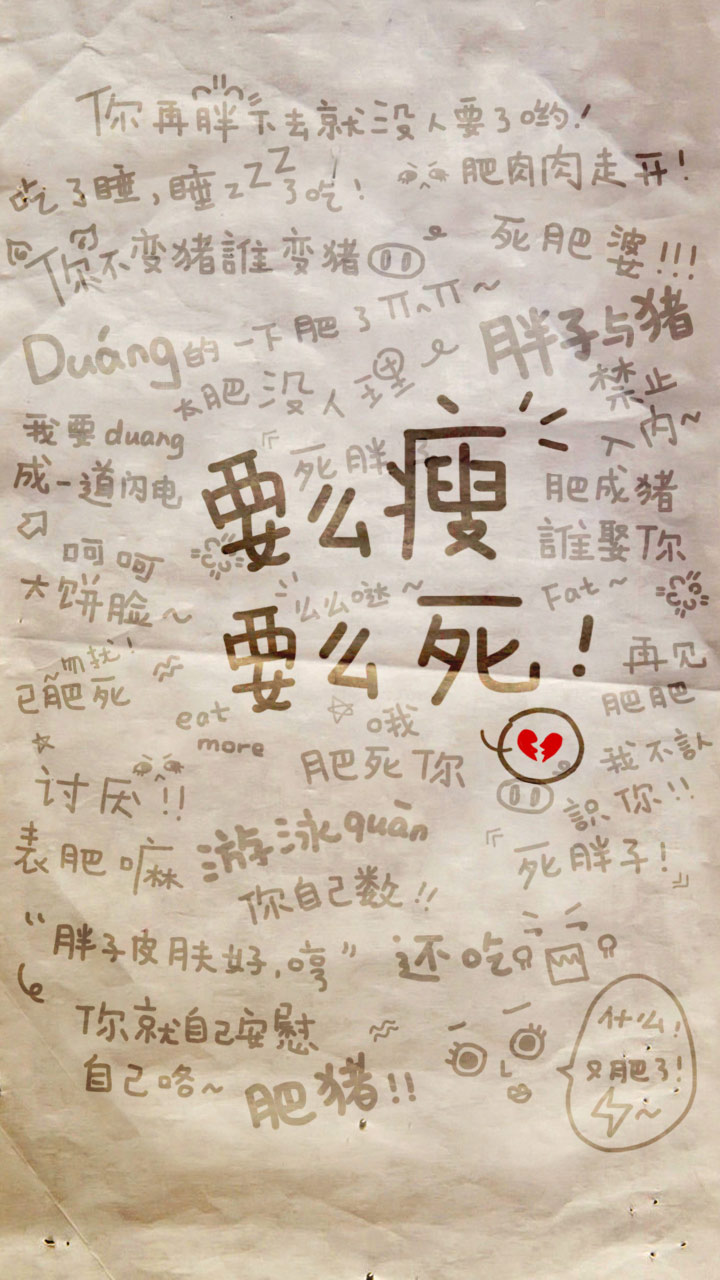 你再胖下去就没人要了哟!
吃了睡,睡zzZZ了吃!
肥肉肉走开!
你不变猪誰变猪
死肥婆!!!
Duáng的一下肥了ㄇ^ㄇ~
胖子与猪
禁止
入内~
太肥没人理
我要duang
成一道闪电
死胖子
要么瘦
肥成猪
誰娶你
呵呵
大饼脸~
么么哒~
Fat~
要么死!
勿扰!
己肥死
再见
肥肥
eat
more
哦
肥死你
我不認
識你!!
讨厌!!
表肥嘛
游泳quān
你自己数!!
死胖子!
“胖子皮肤好,哼”
还吃
你就自己安慰
自己咯~
肥猪!!
什么!
又肥了!
~